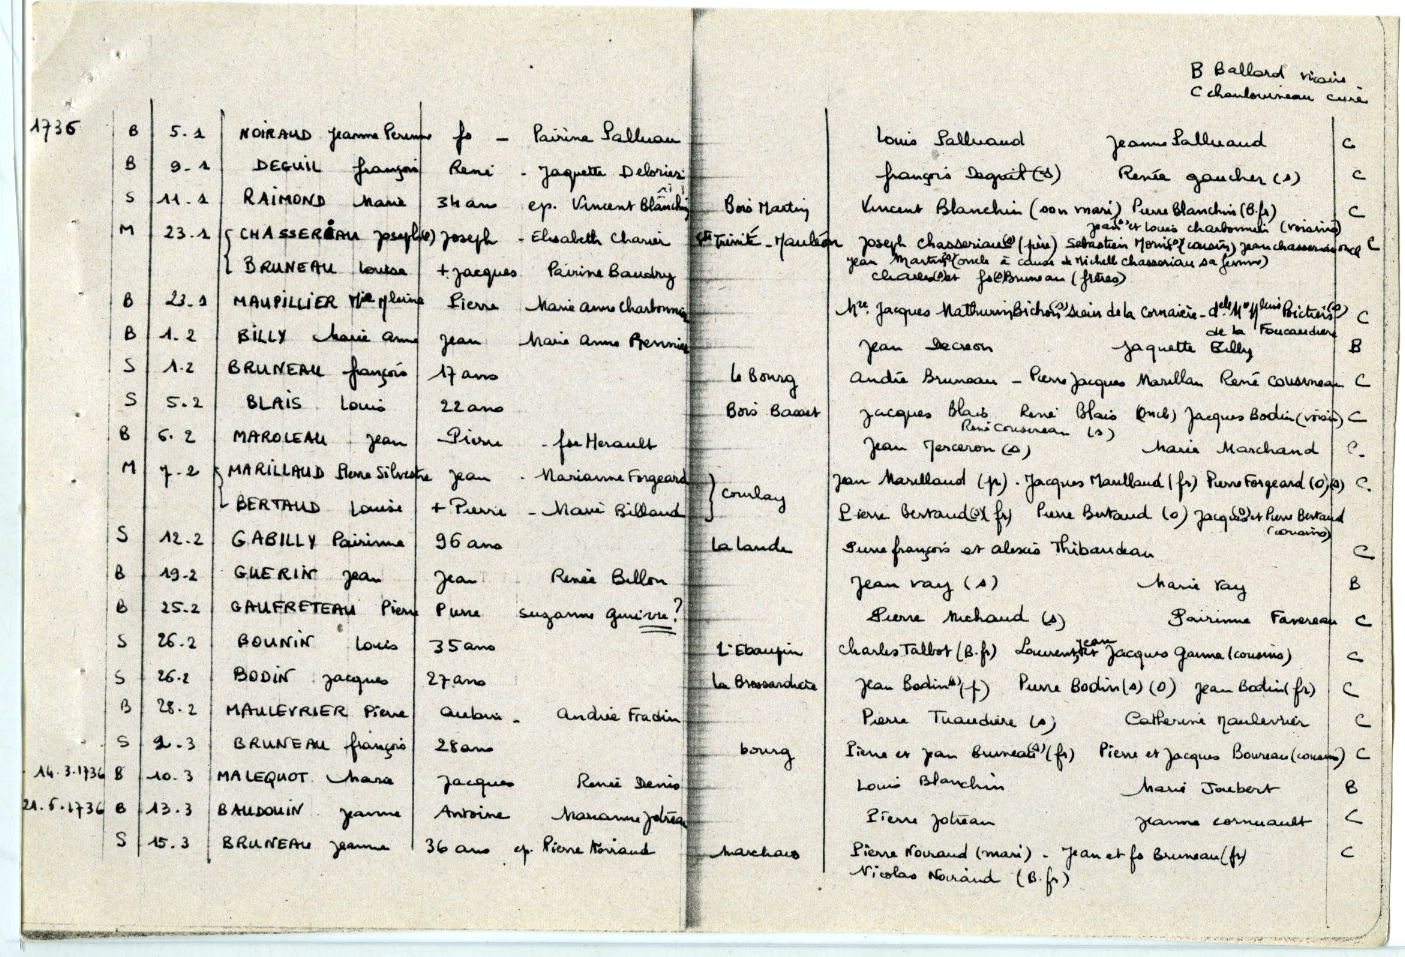 B Ballard vicaire
C chauloumeau curé
1736 B 5.1 NOIRAUD Jeanne Perinne fs - Pairine Palluau Louis Palluaud Jeanne Palluaud C
B 9-1 DEGUIL françois René - Jaquette Delorier françois Deguil (s) Renée gaucher (s) C
S 11.1 RAIMOND Marie 34 ans ep. Vincent Blanchin Bois Martin Vincent Blanchin (son mari) Pierre Blanchin (B.fr) C
Jean (s) et Louis charbonnier (voisins)
M 23.1 CHASSERIAU Joseph (s) Joseph - Elisabeth Charier Ste Trinité - Mauléon Joseph chasseriau (s) (père) Sebastien (cousin) Jean chasseriau oncle C
Jean Martin (s) (oncle à cause de Michell Chasseriau sa femme)
BRUNEAU Louise + Jacques Pairine Baudry Charles (s) et fs (s) Bruneau (frères)
B 23.1 MAUPILLIER Mie Pierre Marie anne Charbonnier Mre Jacques Mathurin Bichon (s) Sieur de la Cornaière - delle Poictiers (s) C
de la Foucaudiere
B 1.2 BILLY Marie Anne Jean Marie Anne Jean Decreon Jaquette Billy B
S 1.2 BRUNEAU françois 17 ans Le Bourg André Bruneau - Pierre Jacques Marillau René cousineau C
S 5.2 BLAIS Louis 22 ans Bois Basset Jacques Blais René Blais (oncle) Jacques Bodin (voisin) C
René Cousineau (s)
B 6.2 MAROLEAU Jean Pierre - fse Herault Jean Merceron (s) Marie Marchand C.
M 7.2 MARILLAUD Pierre Silvestre Jean - Marianne Forgeard Courlay Jean Marillaud (p) - Jacques Marillaud (fr) Pierre Forgeard (O) (s) C.
BERTAUD Louise + Pierre - Marie Billaud Pierre Bertaud (s) (fr) Pierre Bertaud (o) Jacques (s) et Pierre Bertaud
(cousins)
S 12.2 GABILLY Pairinne 96 ans La Lande Pierre françois et alexis Thibaudeau C
B 19.2 GUERIN Jean Jean Renée Billon Jean Vay (s) Marie Vay B
B 25.2 GAUFRETEAU Pierre Pierre suzanne guievre? Pierre Michaud (s) Pairinne Favereau C
S 26.2 BOUNIN Louis 35 ans L'Ebaupin Charles Talbot (B.fr) Laurent, Jean et Jacques Ganne (cousins) C
S 26.2 BODIN Jacques 27 ans La Brossardiere Jean Bodin (s) (p) Pierre Bodin (s) (O) Jean Bodin (fr) C
B 28.2 MAULEVRIER Pierre Aubin - Andrée Fradin Pierre Tuaudiere (s) Catherine Maulevrier C
S 2.3 BRUNEAU françois 28 ans bourg Pierre et Jean Bruneau (s) (fr) Pierre et Jacques Boureau (cousins) C
14.3.1736 B 10.3 MALEQUOT Marie Jacques Renée Denis Louis Blanchin Marie Joubert B
21.5.1736 B 13.3 BAUDOUIN Jeanne Antoine Marianne Jotreau Pierre Jotreau Jeanne cornuault C
S 15.3 BRUNEAU Jeanne 36 ans ep. Pierre Noiraud Marchais Pierre Noiraud (mari) - Jean et fs Bruneau (fr) C
Nicolas Noiraud (B.fr)